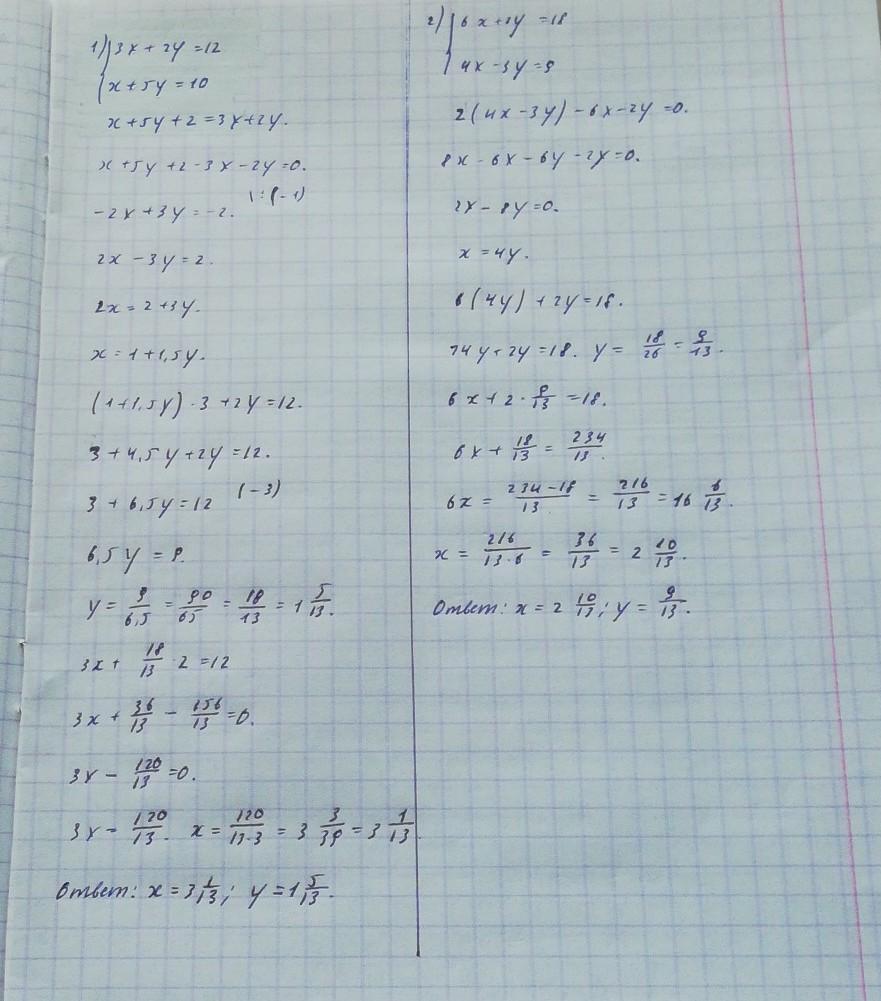 1) { 3x + 2y = 12
x + 5y = 10
x + 5y + 2 = 3x + 2y.
x + 5y + 2 - 3x - 2y = 0.
-2x + 3y = -2. \ : (-1)
2x - 3y = 2.
2x = 2 + 3y.
x = 1 + 1,5y.
(1 + 1,5y) · 3 + 2y = 12.
3 + 4,5y + 2y = 12.
3 + 6,5y = 12 (-3)
6,5y = 9.
y = 9/6,5 = 90/65 = 18/13 = 1 5/13.
3x + 18/13 · 2 = 12
3x + 36/13 - 156/13 = 0.
3x - 120/13 = 0.
3x = 120/13. x = 120/13·3 = 3 3/39 = 3 1/13.
Ответ: x = 3 1/13; y = 1 5/13.
2) { 6x + 2y = 18
4x - 3y = 9
2(4x - 3y) - 6x - 2y = 0.
8x - 6x - 6y - 2y = 0.
2x - 8y = 0.
x = 4y.
6(4y) + 2y = 18.
24y + 2y = 18. y = 18/26 = 9/13.
6x + 2 · 9/13 = 18.
6x + 18/13 = 234/13.
6x = 234-18/13 = 216/13 = 16 8/13.
x = 216/13·6 = 36/13 = 2 10/13.
Ответ: x = 2 10/13; y = 9/13.